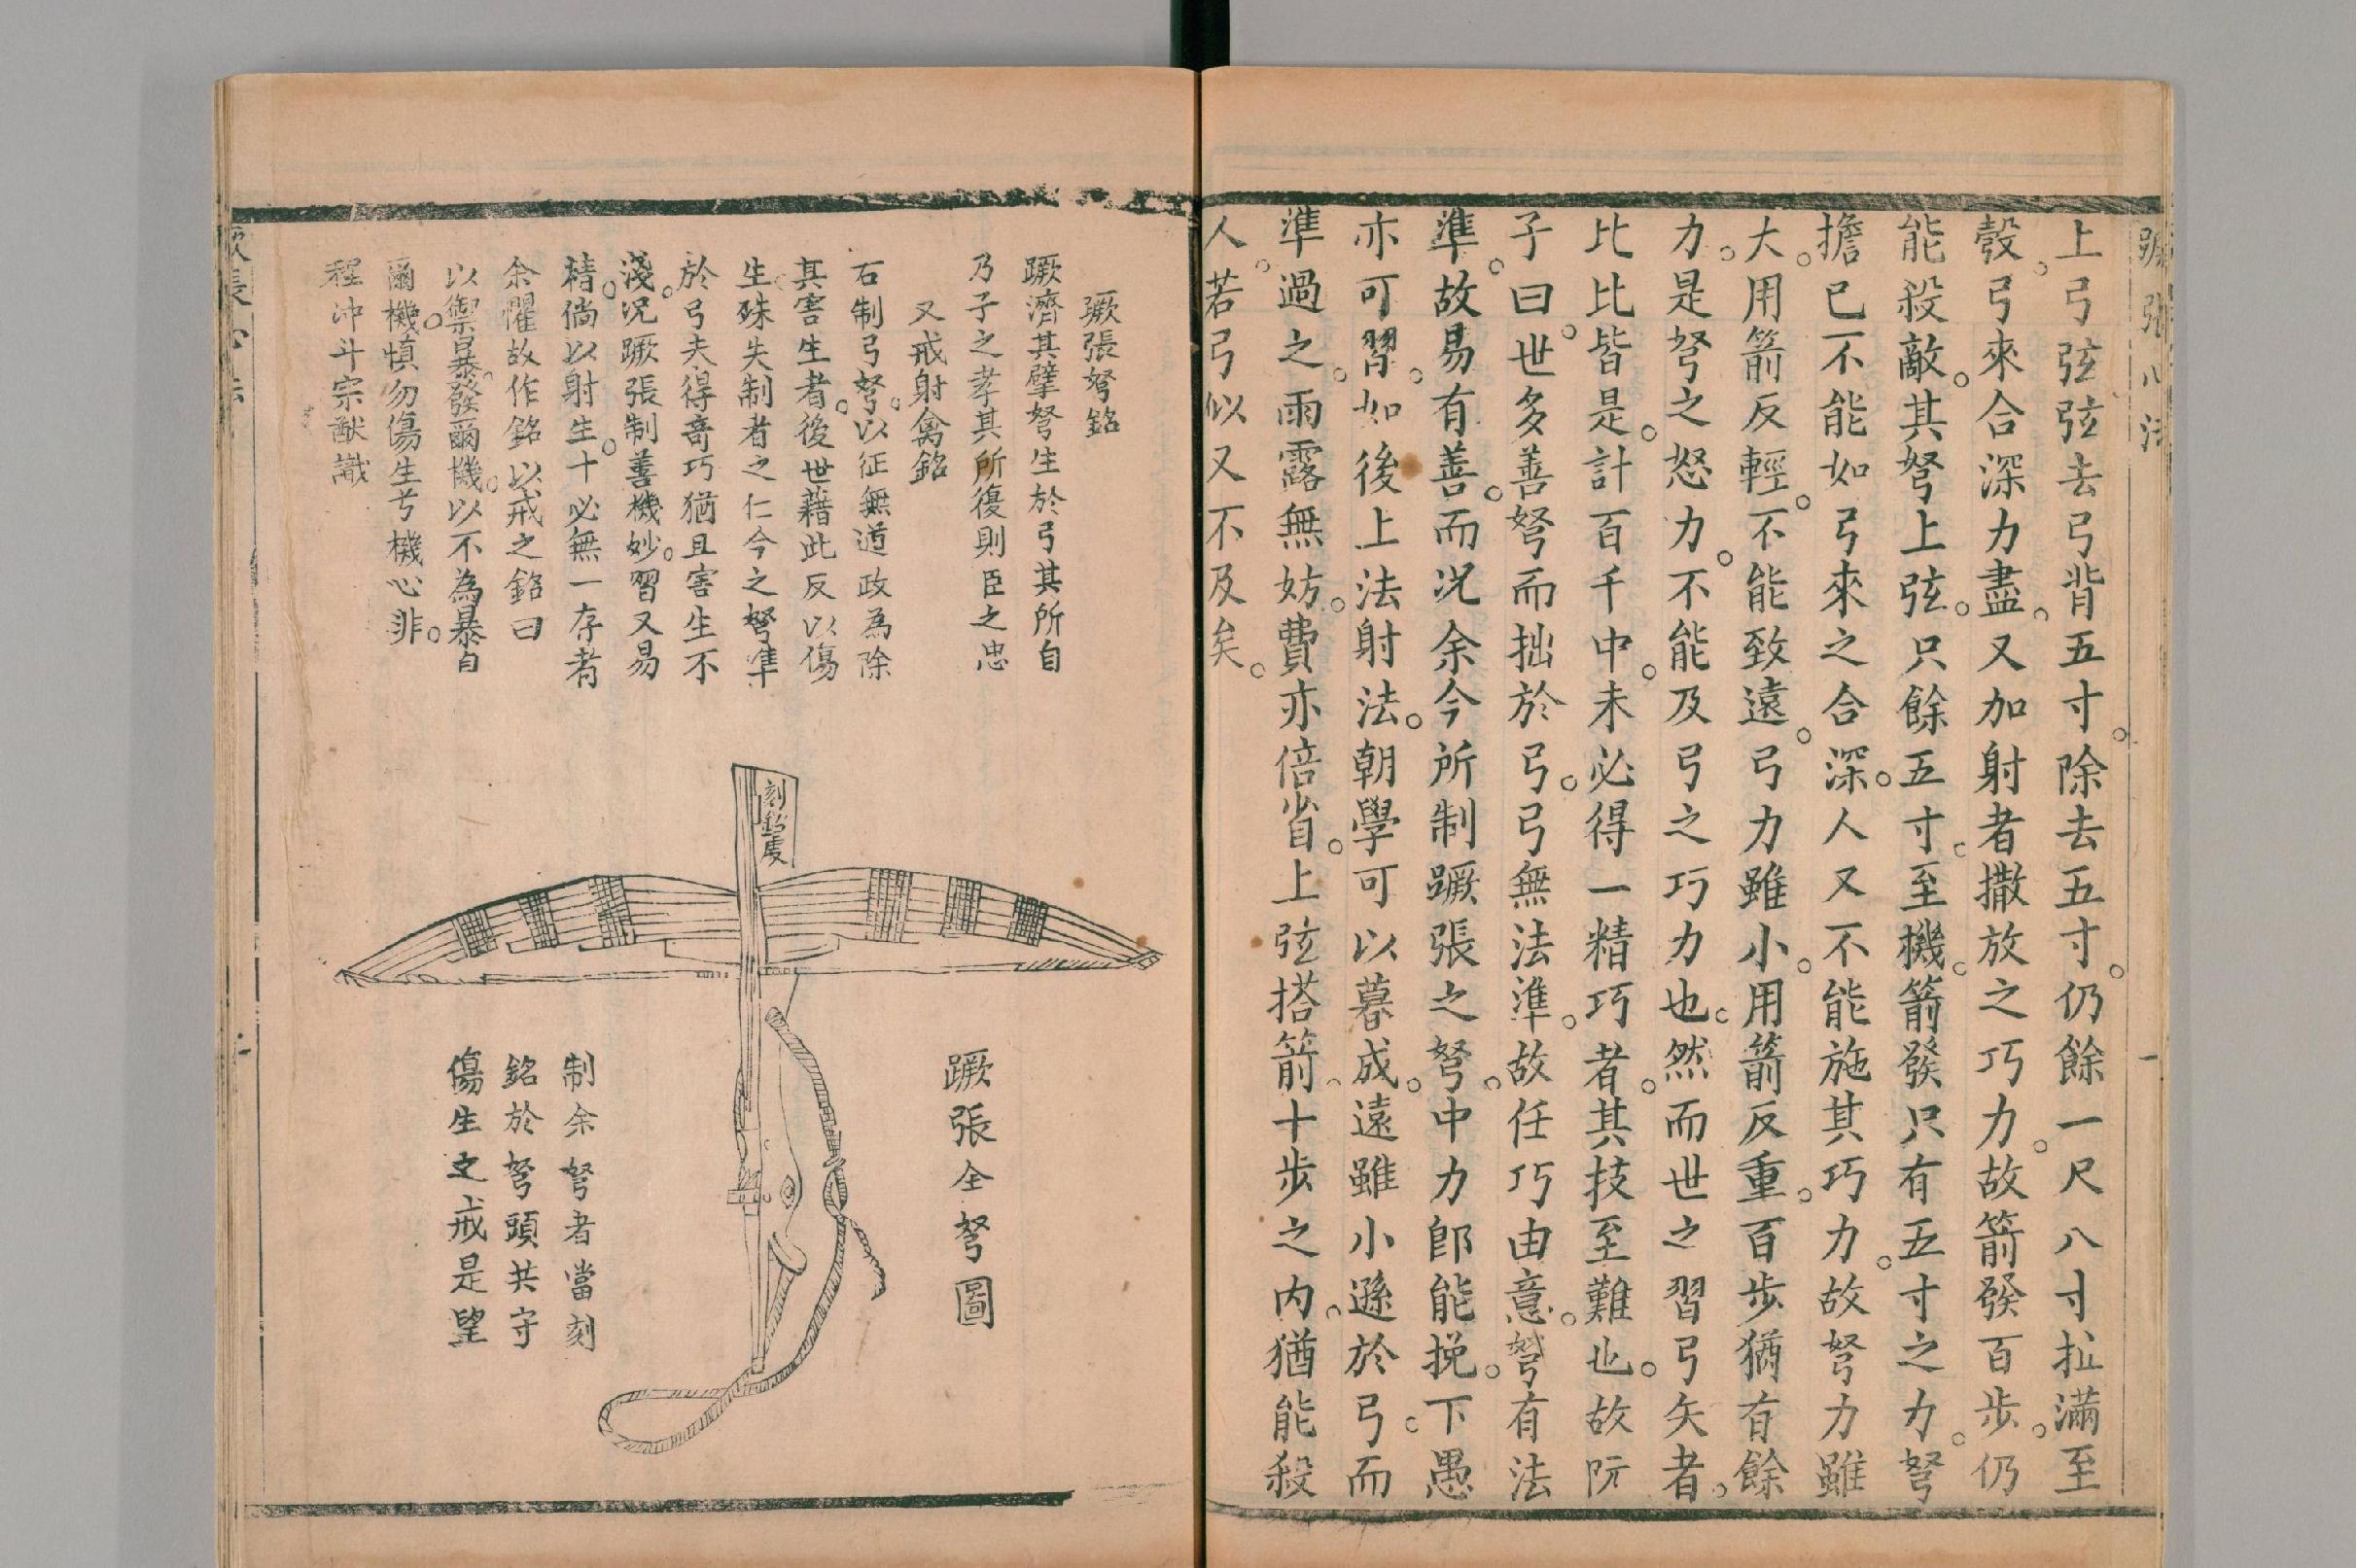 蹶張心法
一
上弓弦弦去弓背五寸。除去五寸。仍餘一尺八寸扯滿至
彀。弓來合深力盡。又加射者撒放之巧力。故箭發百步。仍
能殺敵。其弩上弦。只餘五寸。至機。箭發只有五寸之力。弩
擔已不能如弓來之合深。人又不能施其巧力。故弩力雖
大。用箭反輕。不能致遠。弓力雖小。用箭反重。百步猶有餘
力。是弩之怒力。不能及弓之巧力也。然而世之習弓矢者。
比比皆是。計百千中。未必得一精巧者。其技至難也。故阮
子曰。世多善弩而拙於弓。弓無法準。故任巧由意。弩有法
準。故易有善。而况余今所制蹶張之弩。中力卽能挽。下愚
亦可習。如後上法射法。朝學可以暮成。遠雖小遜於弓。而
準過之。雨露無妨。費亦倍省。上弦搭箭。十步之内。猶能殺
人。若弓似又不及矣。
蹶張弩銘
蹶濟其擘弩生於弓其所自
乃子之孝其所復則臣之忠
又戒射禽銘
右制弓弩。以征無道政為除
其害生者。後世藉此反以傷
生殊失制者之仁今之弩準
於弓夫得竒巧猶且害生不
淺。况蹶張制善機妙。習又易
精。倘以射生。十必無一存者
余懼故作銘以戒之銘曰
以禦暴。發爾機。以不為暴自
爾機。慎勿傷生兮機心非。
程沖斗宗猷識
刻銘處
蹶張全弩圖
制余弩者當刻
銘於弩頭共守
傷生之戒是望